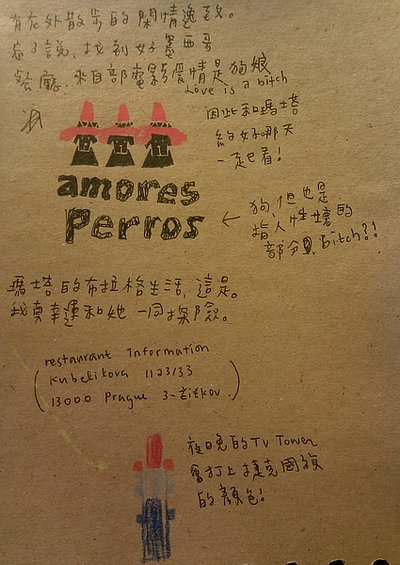 有在外散步的閒情逸致。
忘了說，找到好墨西哥
餐廳，來自部電影愛情是狗娘
Love is a bitch
因此和瑪塔
約好哪天
一起巴看！
amores
Perros
← 狗，但也是
指人性壞的
部分，Bitch?!
瑪塔的布拉格生活，這是。
我真幸運和她一同探險。
restaurant Information
Kubelikova 1123/33
13000 Prague 3-Žižkov
夜晚的TV Tower
會打上捷克國旗
的顏色！